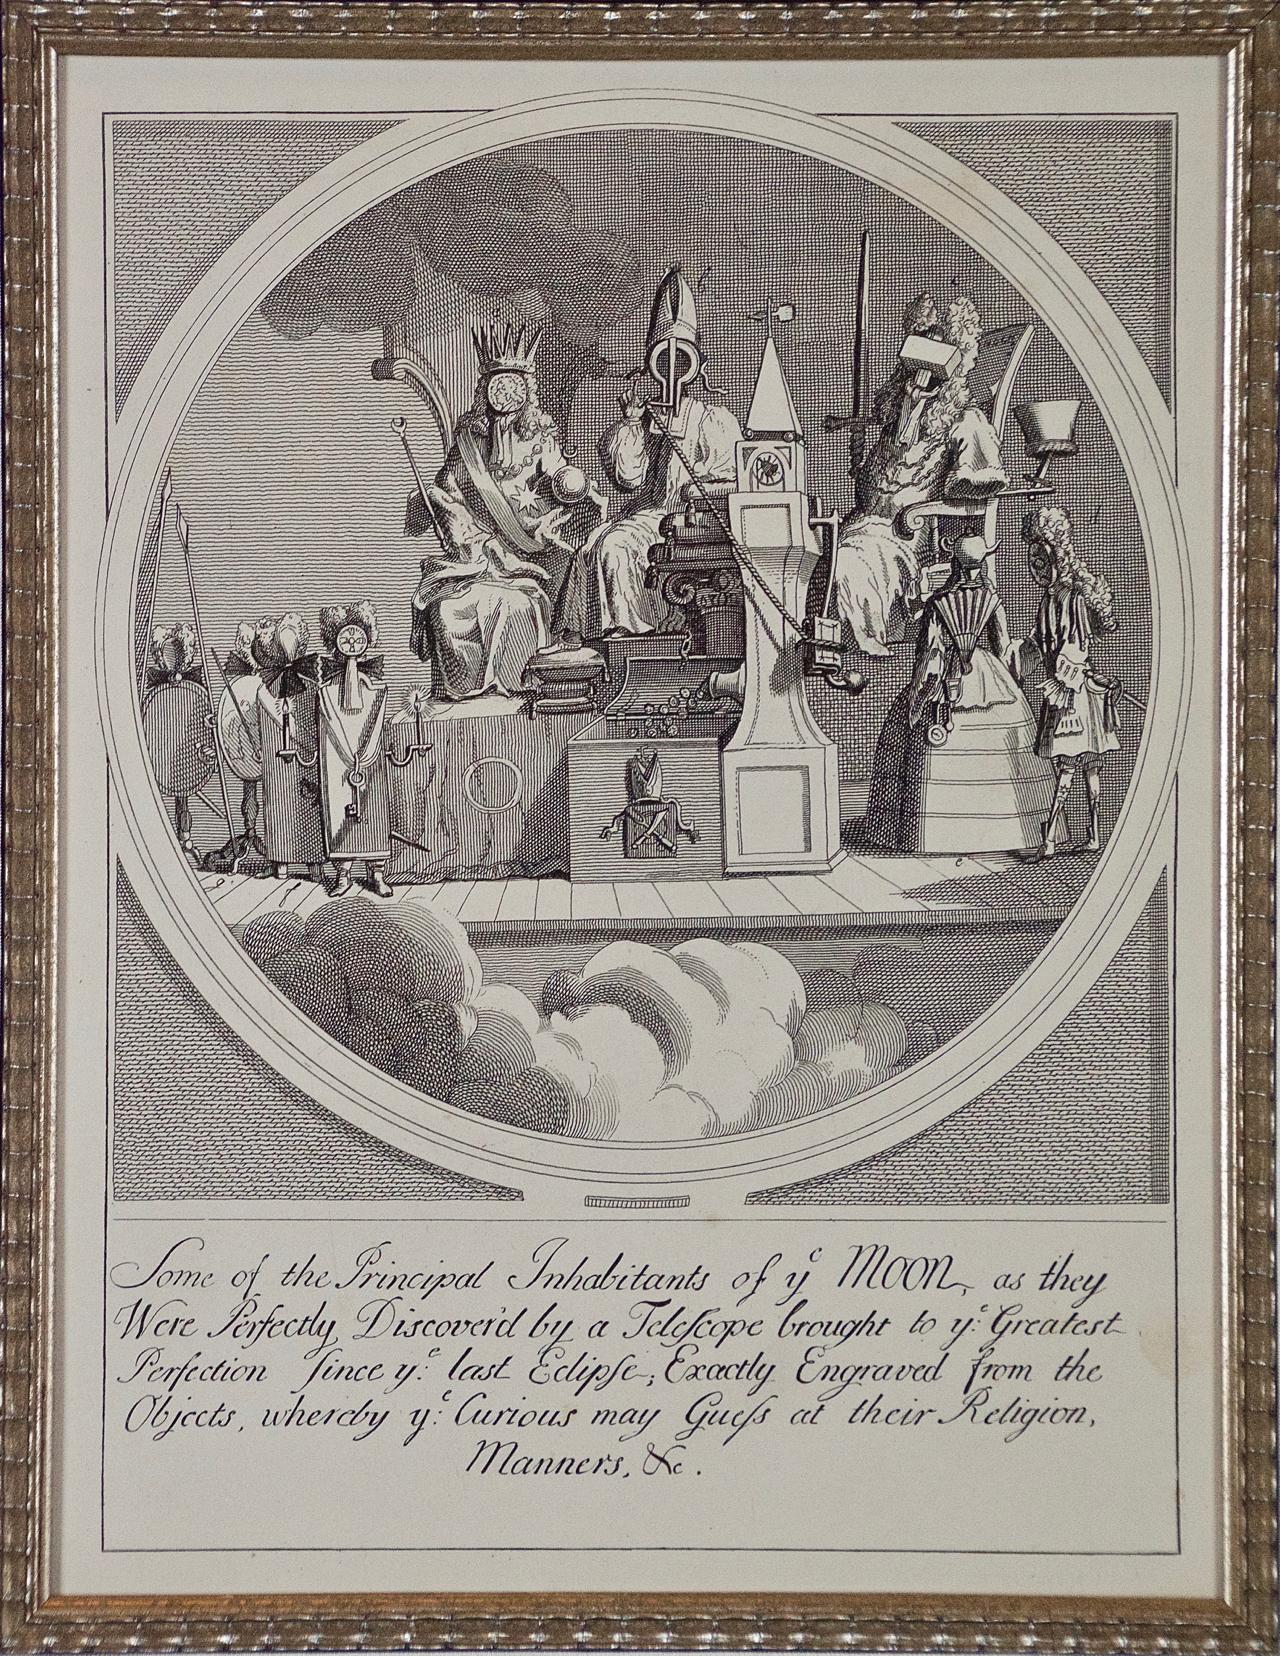 Some of the Principal Inhabitants of yᵉ MOON, as they
Were Perfectly Discover'd by a Teleſcope brought to yᵉ: Greatest
Perfection ſince yᵉ: last Eclipſe; Exactly Engraved from the
Objects, whereby yᵉ: Curious may Gueſs at their Religion,
Manners, &c.